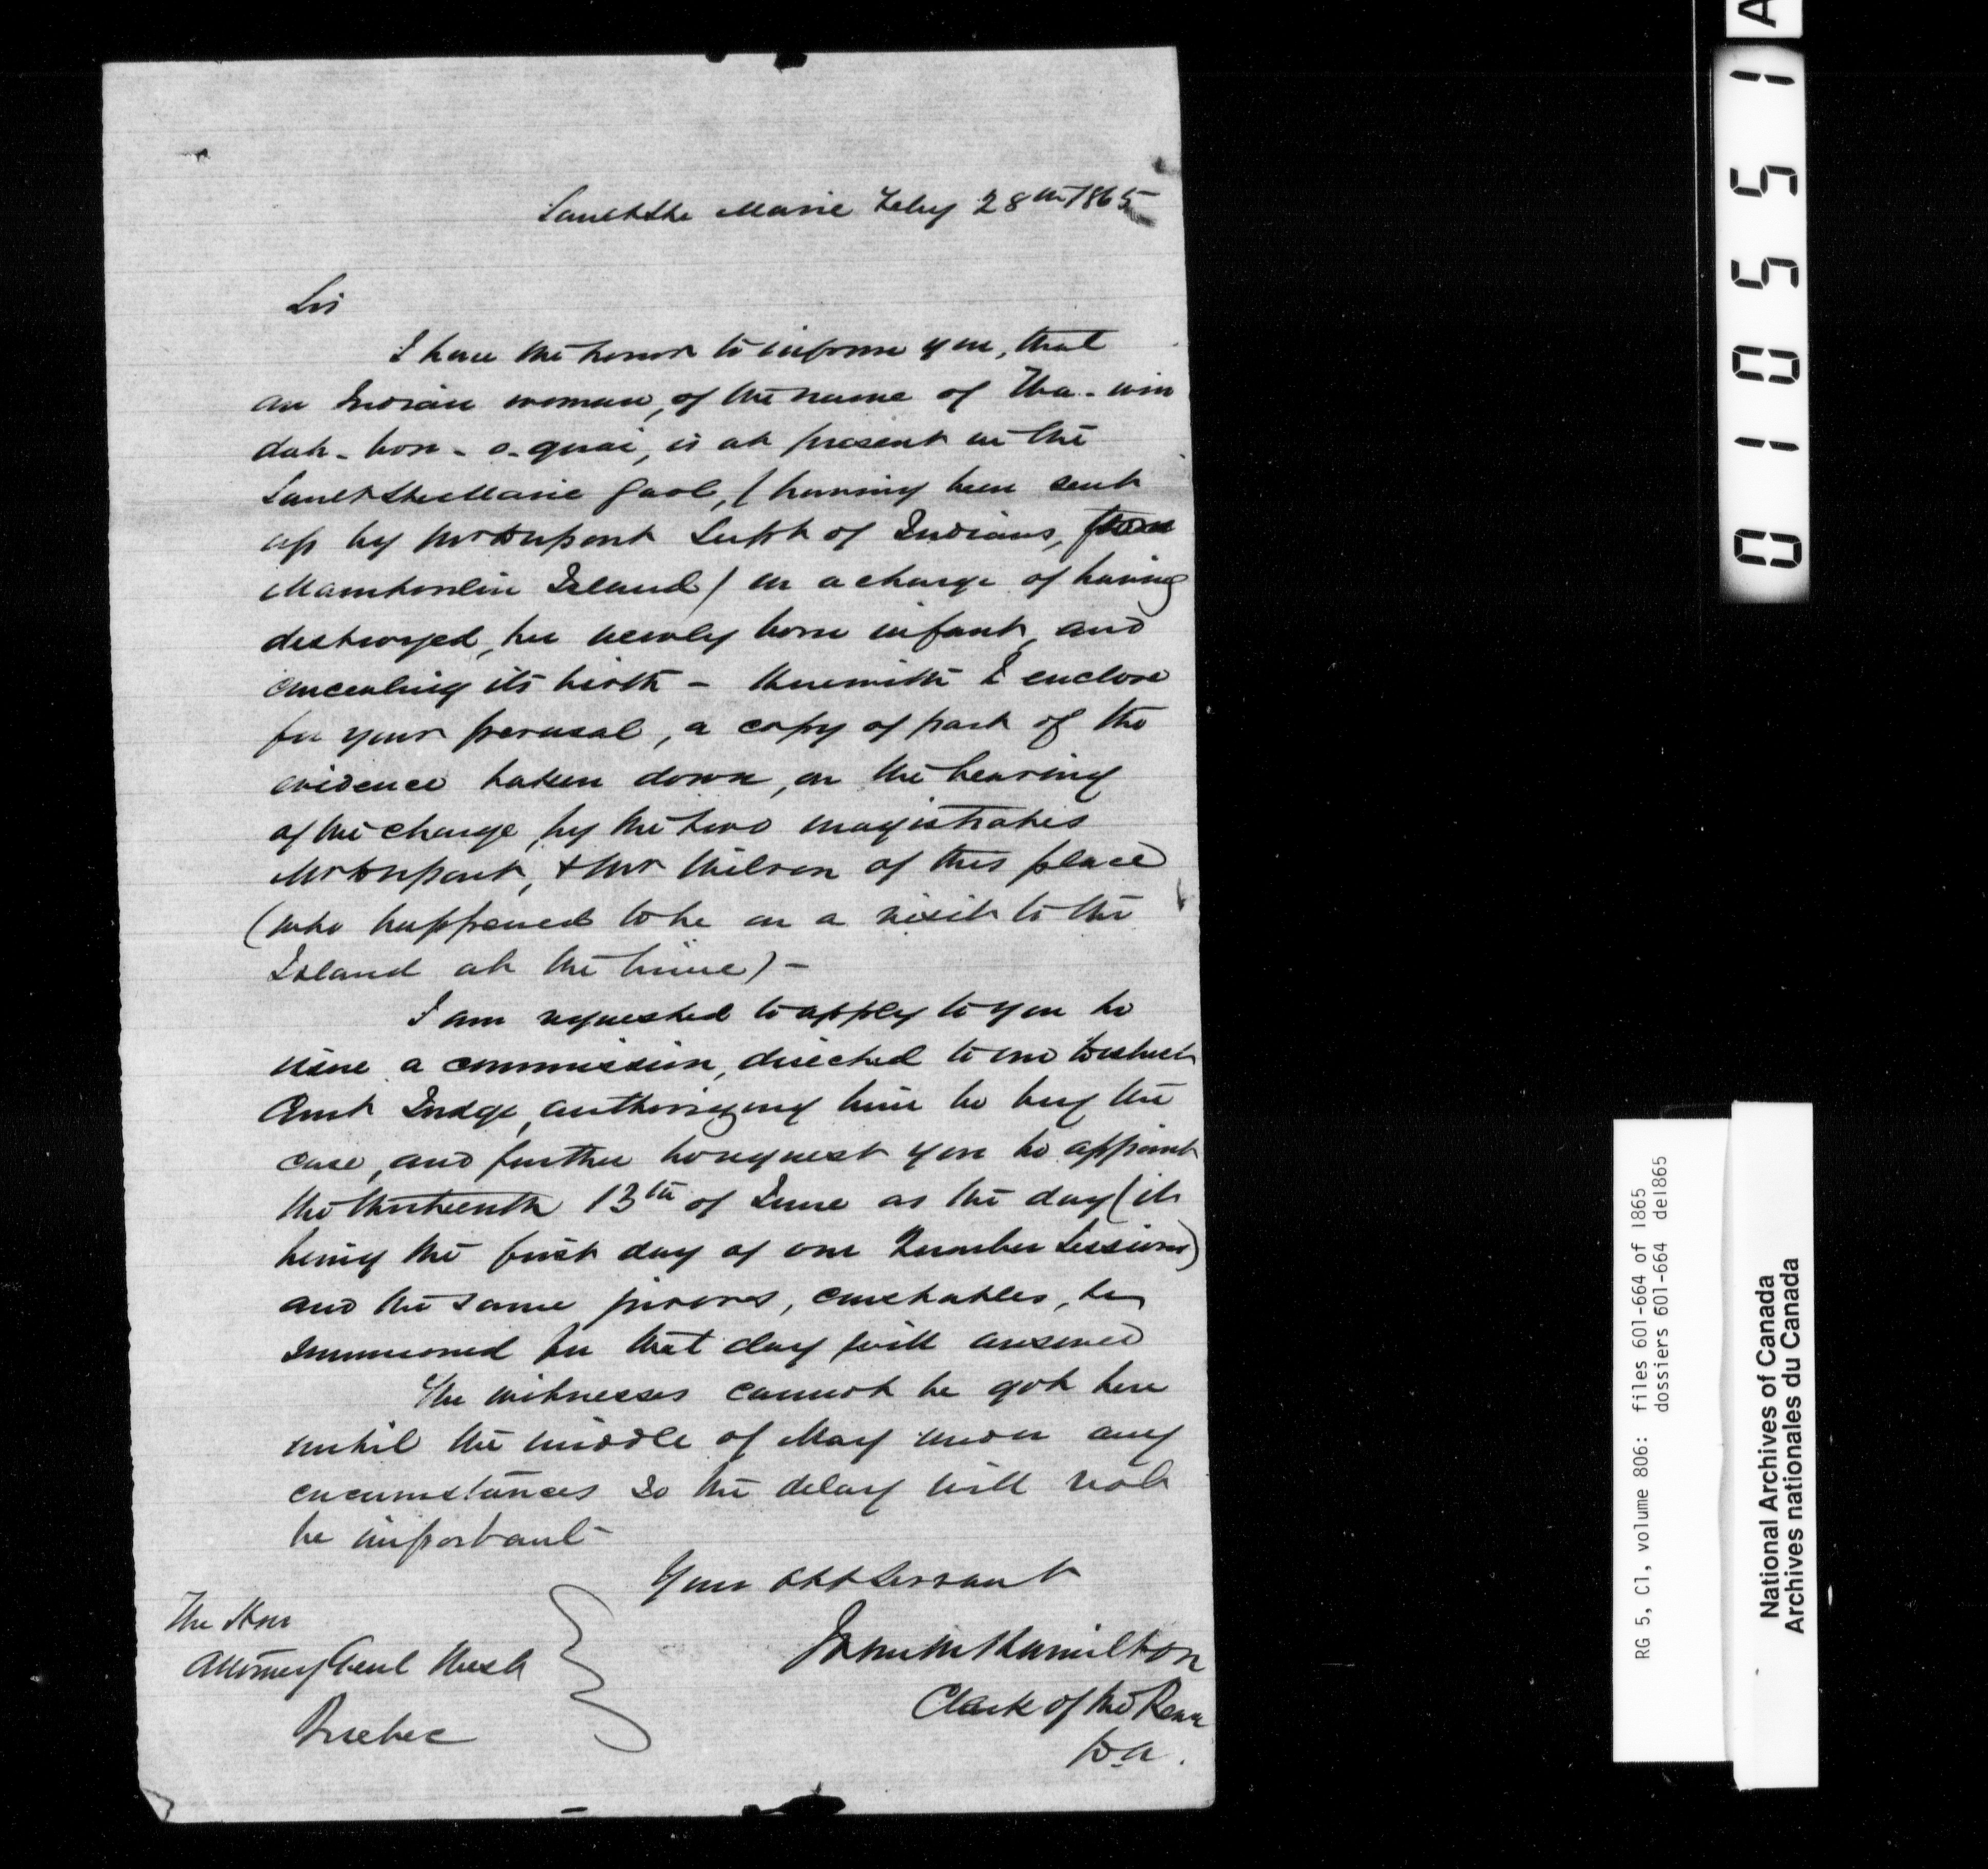 Sault Ste Marie Feby 28th 1865
Sir
I have the honor to inform you, that
an Indian woman, of the name of Wa-win
dah-bon-o-quai, is at present in the
Sault Ste Marie Gaol, (having been sent
up by Mr Dupont Supt of Indians, from
Manitoulin Island) on a charge of having
destroyed, her newly born infant, and
concealing its birth - Herewith I enclose
for your perusal, a copy of part of the
evidence taken down, on the hearing
of the charge, by the two magistrates
Mr Dupont, & Mr Wilson of this place
(who happened to be on a visit to the
Island at the time) -
I am requested to apply to you to
issue a commission, directed to our District
Court Judge, authorizing him to try the
case, and further to request you to appoint
the thirteenth 13th of June as the day (it
being the first day of our Quarter Sessions)
and the same jurors, constables, &c
summoned for that day will answer
The witnesses cannot be got here
until the middle of May under any
circumstances so the delay will not
be important -
Your Obt Servant
John M Hamilton
Clerk of the Peace
D.A.
The Hon
Attorney Genl West
Quebec
A
010551
RG 5, C1, volume 806: files 601-664 of 1865
dossiers 601-664 de1865
National Archives of Canada
Archives nationales du Canada